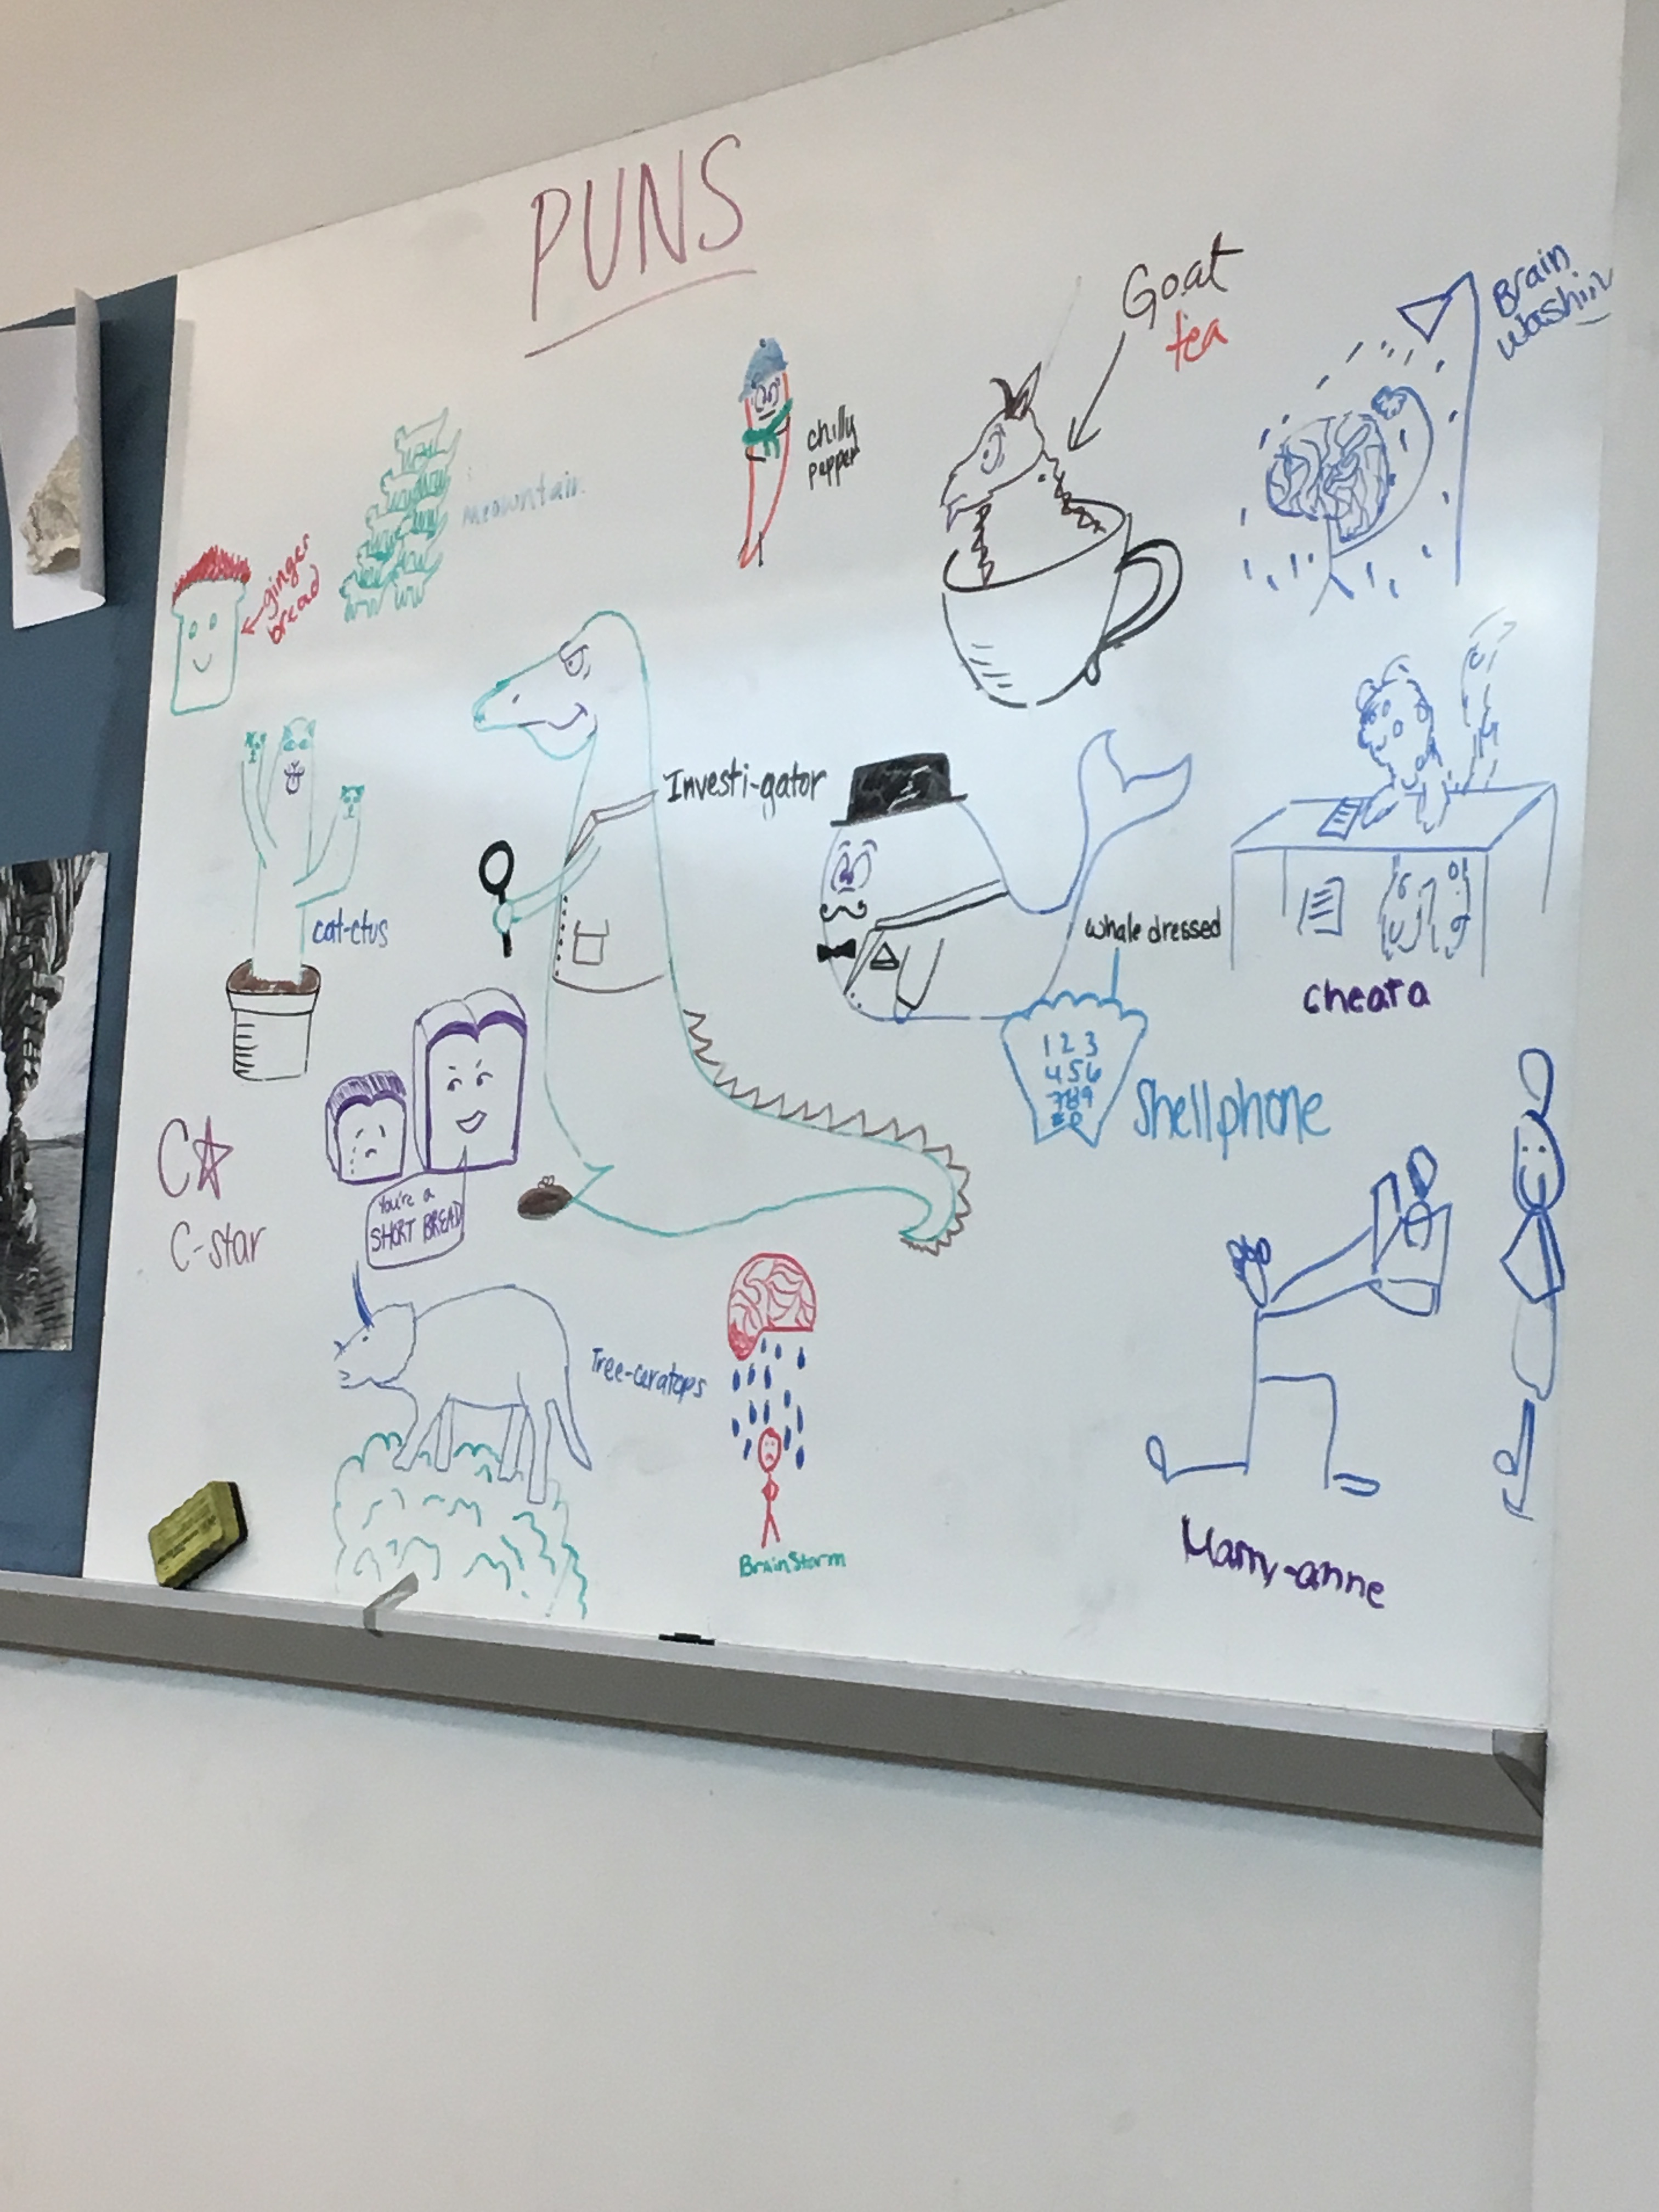 PUNS
Goat
tea
Brain
chilly
pepper
Meowntain
ginger
bread
Investi-gator
cat-ctus
whale dressed
cheata
1 2 3
4 5 6
7 8 9
Shellphone
C☆
C-star
You're a
SHORT BREAD
Tree-ceratops
BrainStorm
Marry-anne